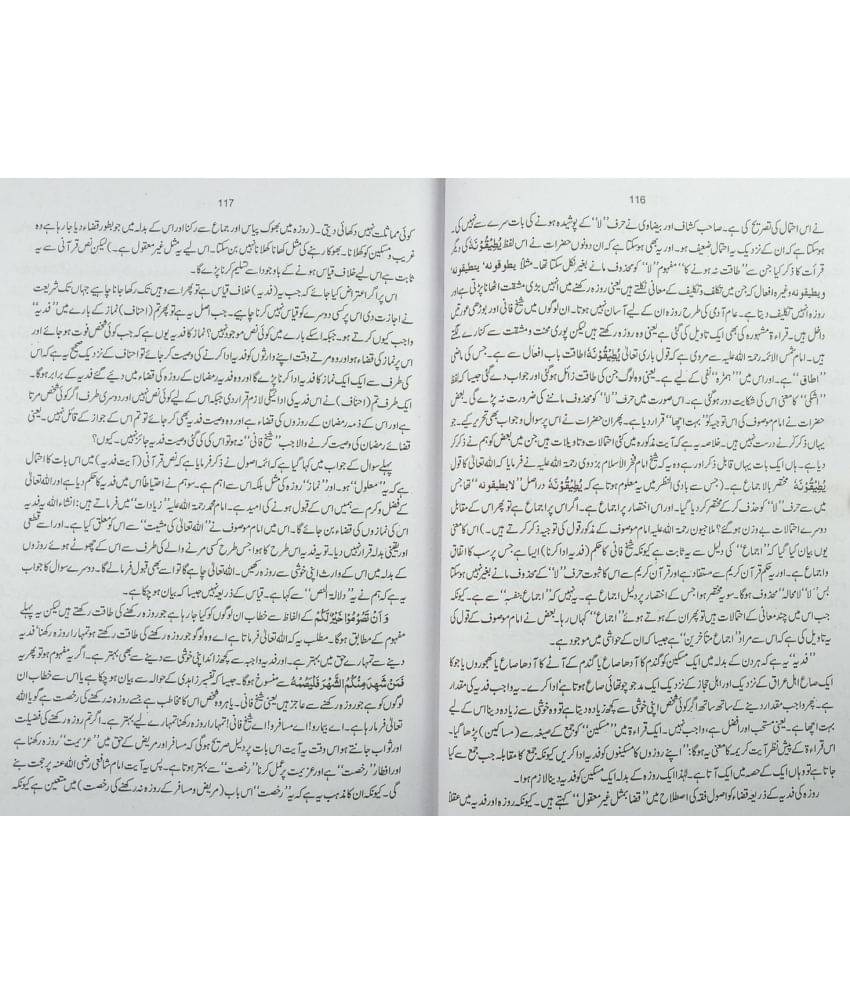 116
نے اس احتمال کی تصریح کی ہے۔ صاحب کشاف اور بیضاوی نے حرف ”لا“ کے پوشیدہ ہونے کی بات سرے سے نہیں کی۔
ہو سکتا ہے کہ ان کے نزدیک یہ احتمال ضعیف ہو۔ اور یہ بھی ہو سکتا ہے کہ ان دونوں حضرات نے اس لفظ يُطِيْقُوْنَهٗ کی دیگر
قرأت کا ذکر کیا جن سے ”طاقت نہ ہونے کا“ مفہوم ”لا“ کو محذوف مانے بغیر نکل سکتا تھا۔ مثلاً يطوقونه‘ يتطيقونه‘
وغیرہ افعال کہ جن میں تکلف و تکلیف کے معانی نکلتے ہیں یعنی روزہ رکھنے میں انہیں بڑی مشقت اٹھانا پڑتی ہے اور
روزہ انہیں تکلیف دیتا ہے۔ عام آدمی کی طرح روزہ ان کے لیے آسان نہیں ہوتا۔ ان لوگوں میں شیخ فانی اور بوڑھی عورتیں
داخل ہیں۔ قراءۃ مشہورہ کی بھی ایک تاویل کی گئی ہے یعنی وہ روزہ رکھتے ہیں لیکن پوری محنت و مشقت سے کنارے لگتے
ہیں۔ امام شمس الائمہ رحمۃ اللہ علیہ سے مروی ہے کہ قول باری تعالیٰ يُطِيْقُوْنَهٗ اطاقت باب افعال سے ہے۔ جس کی ماضی
”اطاق“ ہے۔ اور اس میں ”ہمزہ“ نفی کے لیے ہے۔ یعنی وہ لوگ جن کی طاقت زائل ہو گئی اور جواب دے گئی جیسا کہ لفظ
”اشکی“ کا معنی اس کی شکایت دور کر دی ہے۔ اس صورت میں حرف ”لا“ کو محذوف ماننے کی ضرورت نہ پڑے گی۔ بعض
حضرات نے امام موصوف کی اس توجیہ کو ”بہت اچھا“ قرار دیا ہے۔ پھر ان حضرات نے اس پر سوال و جواب بھی تحریر کیے۔ جو
یہاں ذکر کرنے درست نہیں ہیں۔ خلاصہ یہ ہے کہ آیت مذکورہ میں کئی احتمالات و تاویلات ہیں جن میں بعض کو ہم نے ذکر کر
دیا ہے۔ ہاں ایک بات یہاں قابل ذکر اور ہے وہ یہ کہ شیخ امام فخر الاسلام بزدوی رحمۃ اللہ علیہ نے فرمایا کہ اللہ تعالیٰ کا قول
يُطِيْقُوْنَهٗ مختصر بالاجماع ہے۔ (جس سے بادی النظر میں یہ معلوم ہوتا ہے کہ يُطِيْقُوْنَهٗ دراصل ”لا يطيقونه“ تھا جس
میں سے حرف ”لا“ کو حذف کر کے مختصر کر دیا گیا۔ اور اس اختصار پر اجماع ہے۔ اگر اس پر اجماع ہے تو پھر اس کے مقابل
دوسرے احتمالات بے وزن ہو گئے؟ ملا جیون رحمۃ اللہ علیہ امام موصوف کے مذکور قول کی توجیہ ذکر کرتے ہیں۔) اس کا معنی
یوں بیان کیا گیا کہ ”اجماع“ کی دلیل سے یہ ثابت ہے کیونکہ شیخ فانی کا حکم (فدیہ ادا کرنا) ایسا ہے جس پر سب کا اتفاق
و اجماع ہے۔ یہ حکم قرآن کریم سے مستفاد ہے اور قرآن کریم سے اس کا ثبوت حرف ”لا“ کے محذوف مانے بغیر نہیں ہو سکتا
بس ”لا“ لا محالہ محذوف ہو گا۔ سو یہ مختصر ہوا جس کے اختصار پر دلیل اجماع ہے۔ یہ نہیں کہ ”اجماع بنفسہ“ ہے۔ کیونکہ
جب اس میں چند معانی کے احتمالات ہیں تو پھر ان کے ہوتے ہوئے ”اجماع“ کہاں رہا۔ بعض نے امام موصوف کے قول کی
یہ تاویل کی ہے کہ اس سے مراد ”اجماع متاخرین“ ہے جیسا کہ ان کے حواشی میں موجود ہے۔
”فدیہ“ یہ ہے کہ ہر دن کے بدلہ میں ایک مسکین کو گندم کا آدھا صاع یا گندم کے آٹے کا آدھا صاع یا کھجوروں یا جو کا
ایک صاع اہل عراق کے نزدیک اور اہل حجاز کے نزدیک ایک مد جو چوتھائی صاع ہوتا ہے‘ ادا کرے۔ یہ واجب فدیہ کی مقدار
ہے۔ پھر واجب مقدار دینے کے ساتھ ساتھ اگر کوئی شخص اپنی خوشی سے کچھ زیادہ دیتا ہے تو وہ خوشی سے زیادہ دینا اس کے لیے
بہت اچھا ہے۔ یعنی مستحب اور افضل ہے‘ واجب نہیں۔ ایک قراءۃ میں ”مسکین“ کو جمع کے صیغہ سے (مساکین) پڑھا گیا۔
اس قراءۃ کے پیش نظر آیت کریمہ کا معنی یہ ہو گا: ”اپنے روزوں کا مسکینوں کو فدیہ ادا کریں کیونکہ جمع کا مقابلہ جب جمع سے کیا
جاتا ہے تو وہاں ایک کے حصہ میں ایک آتا ہے۔ لہٰذا ایک روزہ کے بدلہ ایک مسکین کو فدیہ دینا لازم ہوا۔
روزہ کی فدیہ کے ذریعہ قضاء کو اصول فقہ کی اصطلاح میں ”قضا بمثل غیر معقول“ کہتے ہیں۔ کیونکہ روزہ اور فدیہ میں عقلا
117
کوئی مماثلت نہیں دکھائی دیتی۔ (روزہ میں بھوک پیاس اور جماع سے رکنا اور اس کے بدلہ میں جو بطور قضاء دیا جا رہا ہے وہ
غریب و مسکین کو کھلانا۔ بھوکا رہنے کی مثل کھانا کھلانا نہیں بن سکتا۔ اس لیے یہ مثل غیر معقول ہے۔) لیکن نص قرآنی سے یہ
ثابت ہے اس لیے خلاف قیاس ہونے کے باوجود اسے تسلیم کرنا پڑے گا۔
اس پر اگر اعتراض کیا جائے کہ جب یہ (فدیہ) خلاف قیاس ہے تو پھر اسے وہیں تک رکھا جانا چاہیے جہاں تک شریعت
نے اجازت دی اس پر کسی دوسرے کو قیاس نہیں کرنا چاہیے۔ جب اصل یہ ہے تو پھر تم (احناف) نماز کے بارے میں ”فدیہ“
واجب کیوں کرتے ہو۔ جبکہ اس کے بارے میں کوئی نص موجود نہیں؟ نماز کا فدیہ یوں ہے کہ جب کوئی شخص فوت ہو جائے اور
اس پر نماز کی قضاء ہو اور وہ مرتے وقت اپنے وارثوں کو فدیہ ادا کرنے کی وصیت کر جائے تو احناف کے نزدیک صحیح یہ ہے کہ اس
کی طرف سے ایک ایک نماز کا فدیہ ادا کرنا پڑے گا اور وہ فدیہ رمضان کے روزہ کی قضاء میں دیئے گئے فدیہ کے برابر ہو گا۔
ایک طرف تم (احناف) نے اس فدیہ کی ادائیگی لازم قرار دی جبکہ اس کے لیے کوئی نص نہیں اور دوسری طرف اگر کوئی شخص مرتا
ہے اور اس کے ذمہ رمضان کے روزوں کی قضاء ہے اور وہ وصیت فدیہ بھی کر جائے تو تم اس کے جواز کے قائل نہیں۔ یعنی
قضائے رمضان کی وصیت کرنے والا جب ”شیخ فانی“ نہ ہو تو اس کی کی گئی وصیت فدیہ جائز نہیں۔ کیوں؟
پہلے سوال کے جواب میں کہا گیا ہے کہ ائمہ اصول نے ذکر فرمایا ہے کہ نص قرآنی (آیت فدیہ) میں اس بات کا احتمال
ہے کہ یہ ”معلول“ ہو۔ اور ”نماز“ روزہ کی مثل بلکہ اس سے اہم ہے۔ سو ہم نے احتیاطاً اس میں فدیہ کا حکم دیا ہے اور اللہ تعالیٰ
کے فضل و کرم سے ہمیں اس کے قبول ہونے کی امید ہے۔ امام محمد رحمۃ اللہ علیہ ”زیادات“ میں فرماتے ہیں: انشاء اللہ یہ فدیہ
اس کی نمازوں کی قضاء بن جائے گا۔ اس میں امام موصوف نے ”اللہ تعالیٰ کی مشیت“ سے اس کو معلق کیا ہے۔ اور اسے قطعی
اور یقینی بدلہ قرار نہیں دیا۔ تو یہ فدیہ اس طرح کا ہوا جس طرح کسی مرنے والے کی طرف سے اس کے چھوٹے ہوئے روزوں
کے بدلہ میں اس کے وارث اپنی خوشی سے روزہ رکھیں۔ اللہ تعالیٰ چاہے گا تو اسے بھی قبول فرمائے گا۔ دوسرے سوال کا جواب
یہ ہے کہ ہم نے یہ ”دلالۃ النص“ سے کہا ہے۔ قیاس کے ذریعہ نہیں جیسا کہ بیان ہو چکا ہے۔
وَ اَنْ تَصُوْمُوْا خَيْرٌ لَّكُمْ کے الفاظ سے خطاب ان لوگوں کو کیا جا رہا ہے جو روزہ رکھنے کی طاقت رکھتے ہیں لیکن یہ پہلے
مفہوم کے مطابق ہو گا۔ مطلب یہ کہ اللہ تعالیٰ فرماتا ہے اے وہ لوگو جو روزہ رکھنے کی طاقت رکھتے ہو تمہارا روزہ رکھنا ‘فدیہ
دینے سے تمہارے حق میں بہتر ہے۔ اور فدیہ واجبہ سے کچھ زائد اپنی خوشی سے دینے سے بھی بہتر ہے۔ اگر یہ مفہوم ہو تو پھر یہ
فَمَنْ شَهِدَ مِنْكُمُ الشَّهْرَ فَلْيَصُمْهُ سے منسوخ ہو گا۔ جیسا کہ تفسیر زاہدی کے حوالہ سے بیان ہو چکا ہے یا اس سے خطاب ان
لوگوں کو ہے جو روزہ رکھنے سے عاجز ہیں یعنی شیخ فانی۔ یا ہر وہ شخص اس کا مخاطب ہے جسے روزہ نہ رکھنے کی رخصت ہے گویا اللہ
تعالیٰ فرما رہا ہے۔ اے بیمارو! اے مسافرو! اے شیخ فانی! تمہارا روزہ رکھنا تمہارے لیے بہتر ہے۔ اگر تم روزہ رکھنے کی فضیلت
اور ثواب جانتے ہو اس وقت یہ آیت اس بات پر دلیل صریح ہو گی کہ مسافر اور مریض کے حق میں ”عزیمت“ روزہ رکھنا ہے
اور افطار ”رخصت“ ہے اور عزیمت پر عمل کرنا ”رخصت“ سے بہتر ہوتا ہے۔ پس یہ آیت امام شافعی رضی اللہ عنہ پر حجت بنے
گی۔ کیونکہ ان کا مذہب یہ ہے کہ یہ ”رخصت“ اس باب (مریض و مسافر کے روزہ نہ رکھنے کی رخصت) میں متعین ہے کیونکہ